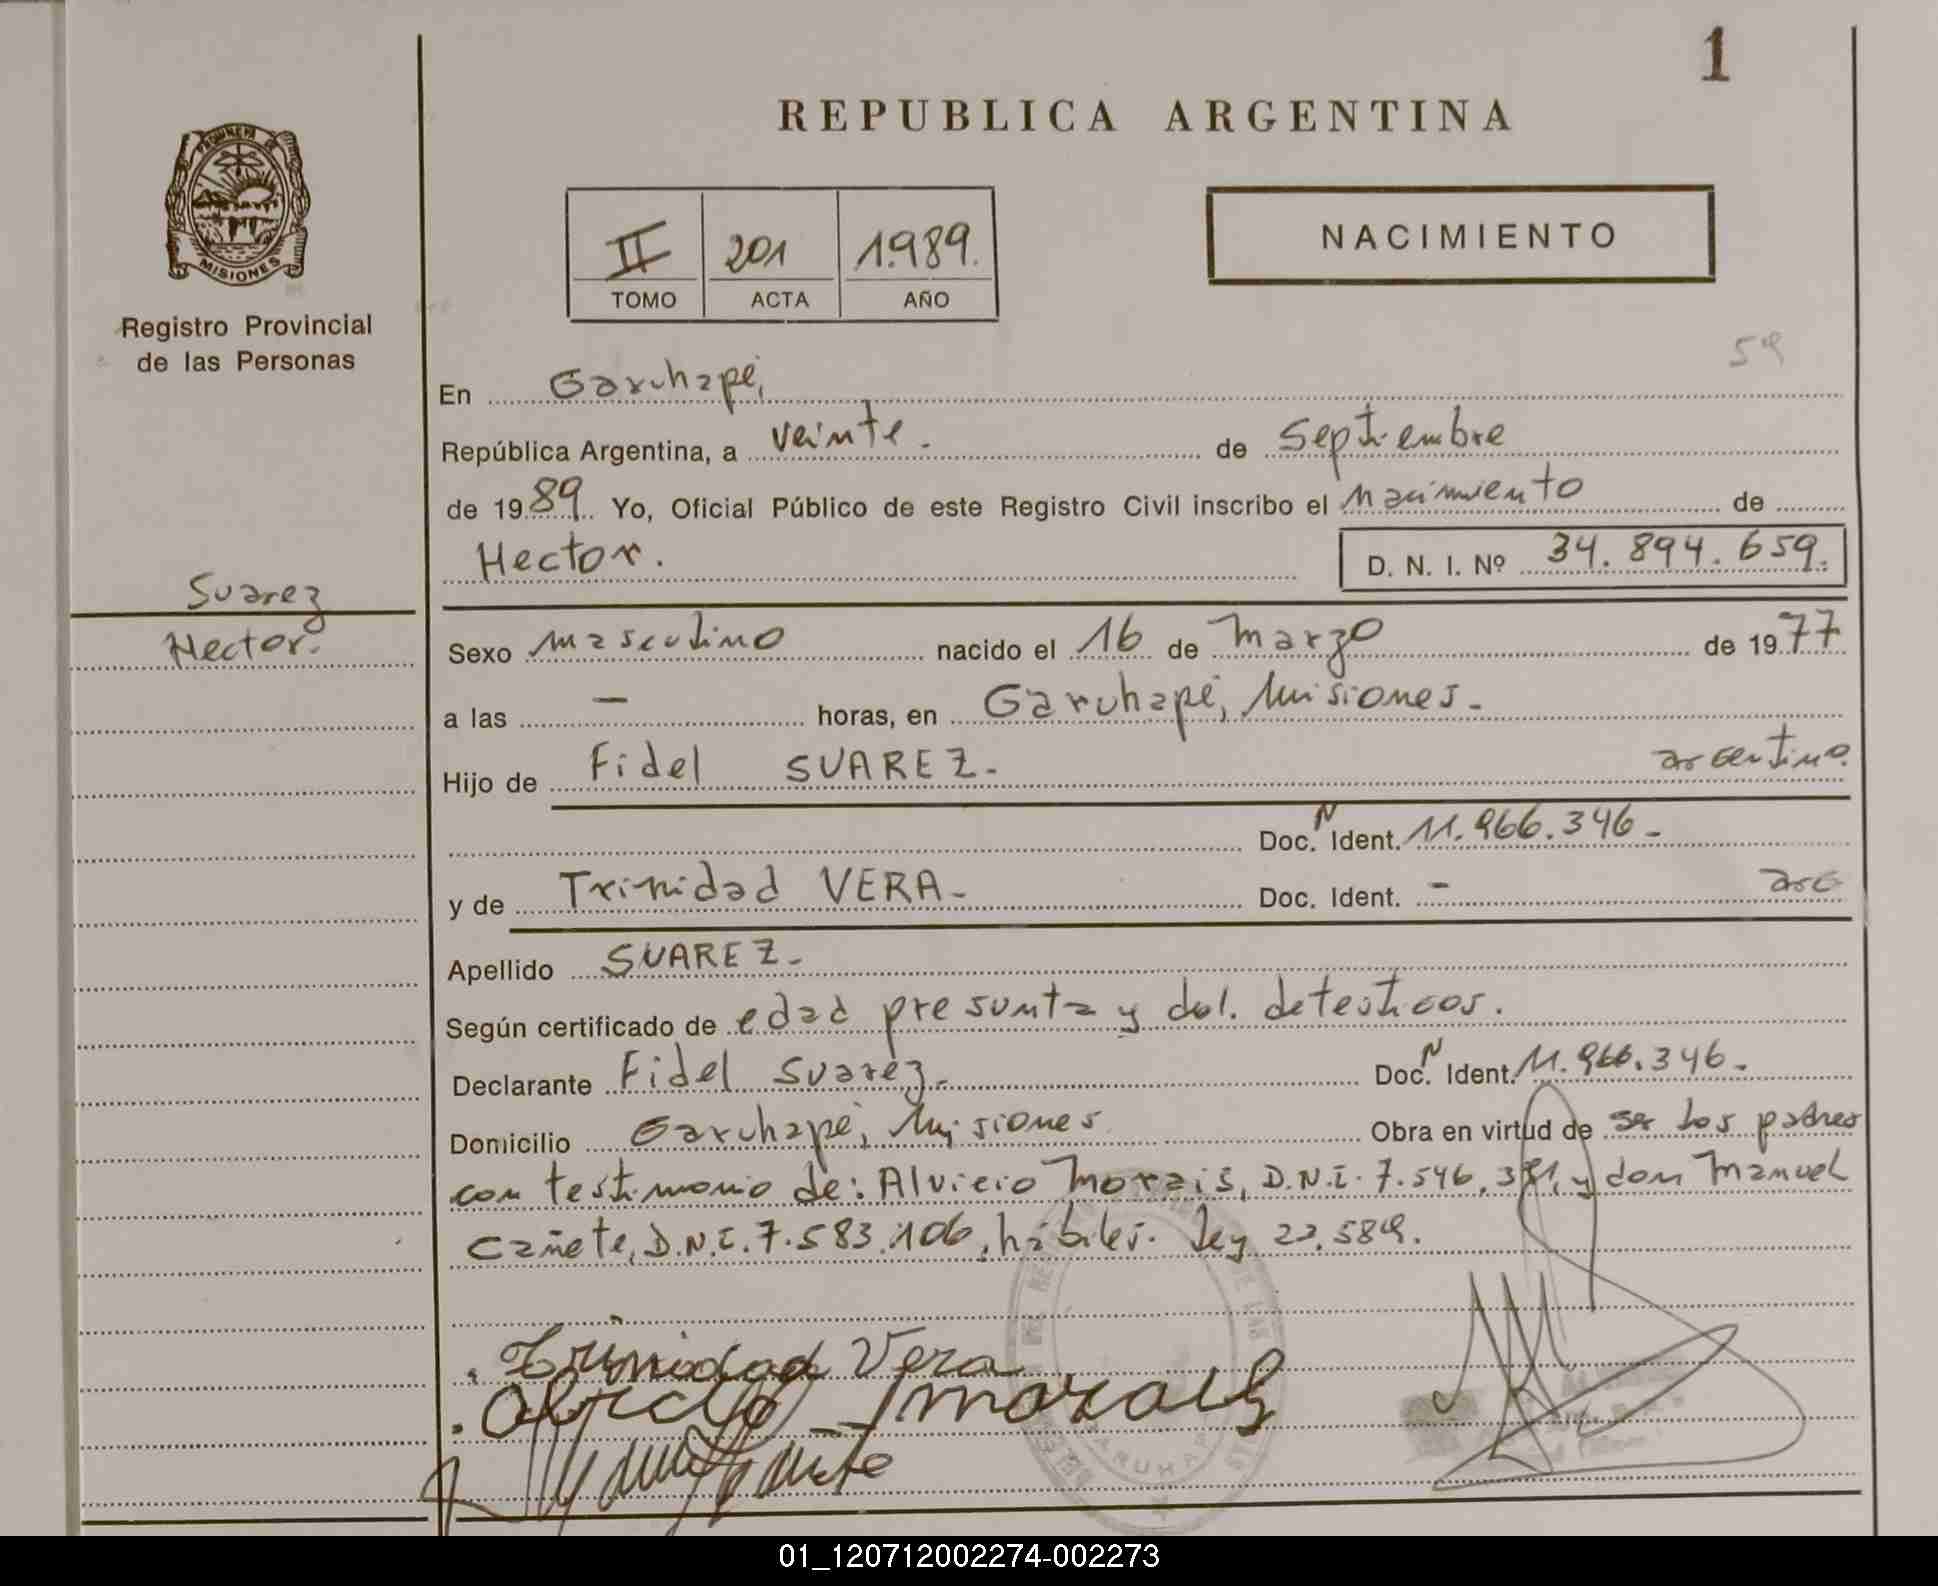 1
REPUBLICA ARGENTINA
PROVINCIA DE
MISIONES
Registro Provincial
de las Personas
II 201 1.989.
TOMO ACTA AÑO
NACIMIENTO
59
En Garuhapé,
República Argentina, a veinte. de Septiembre
de 1989. Yo, Oficial Público de este Registro Civil inscribo el nacimiento de
Hector. D. N. I. Nº 34.894.659.
Suarez
Hector.
Sexo masculino nacido el 16 de marzo de 1977
a las — horas, en Garuhapé, Misiones.-
Hijo de Fidel SUAREZ.- argentino.
Doc. N Ident. 11.966.346.-
y de Trinidad VERA.- Doc. Ident. - arg
Apellido SUAREZ.-
Según certificado de edad presunta y
Declarante Fidel Suarez.- Doc. N Ident. 11.966.346.-
Domicilio Garuhapé, Misiones Obra en virtud de ser los padres
con testimonio de: Alvicio Morais, D.N.I. 7.546. y don Manuel
Cañete, D.N.I. 7.583.106, hábiles. Ley
Trinidad Vera
Morais
GARUHAPE
01_120712002274-002273